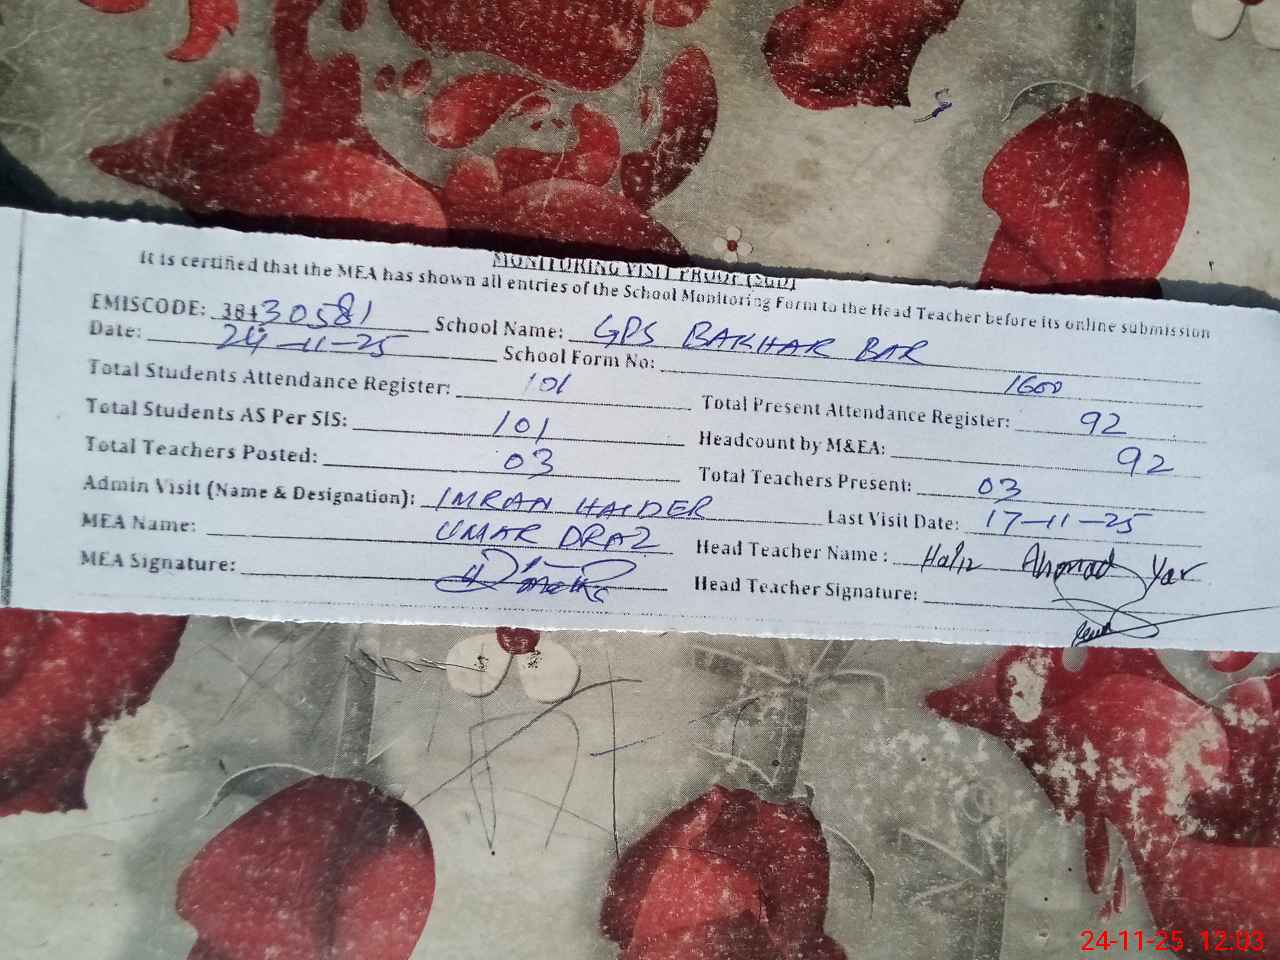 MONITORING VISIT PROOF (SGD)
It is certified that the MEA has shown all entries of the School Monitoring Form to the Head Teacher before its online submission
EMISCODE: 38430581 School Name: GPS BAKHAR BAR
Date: 24-11-25 School Form No: 1600
Total Students Attendance Register: 101 Total Present Attendance Register: 92
Total Students AS Per SIS: 101 Headcount by M&EA: 92
Total Teachers Posted: 03 Total Teachers Present: 03
Admin Visit (Name & Designation): IMRAN HAIDER Last Visit Date: 17-11-25
MEA Name: UMAR DRAZ Head Teacher Name : Hafiz Ahmad Yar
MEA Signature: Head Teacher Signature:
24-11-25 12:03